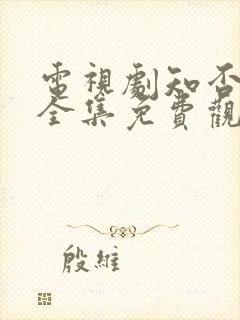 電視劇知否
全集免費觀
殷維